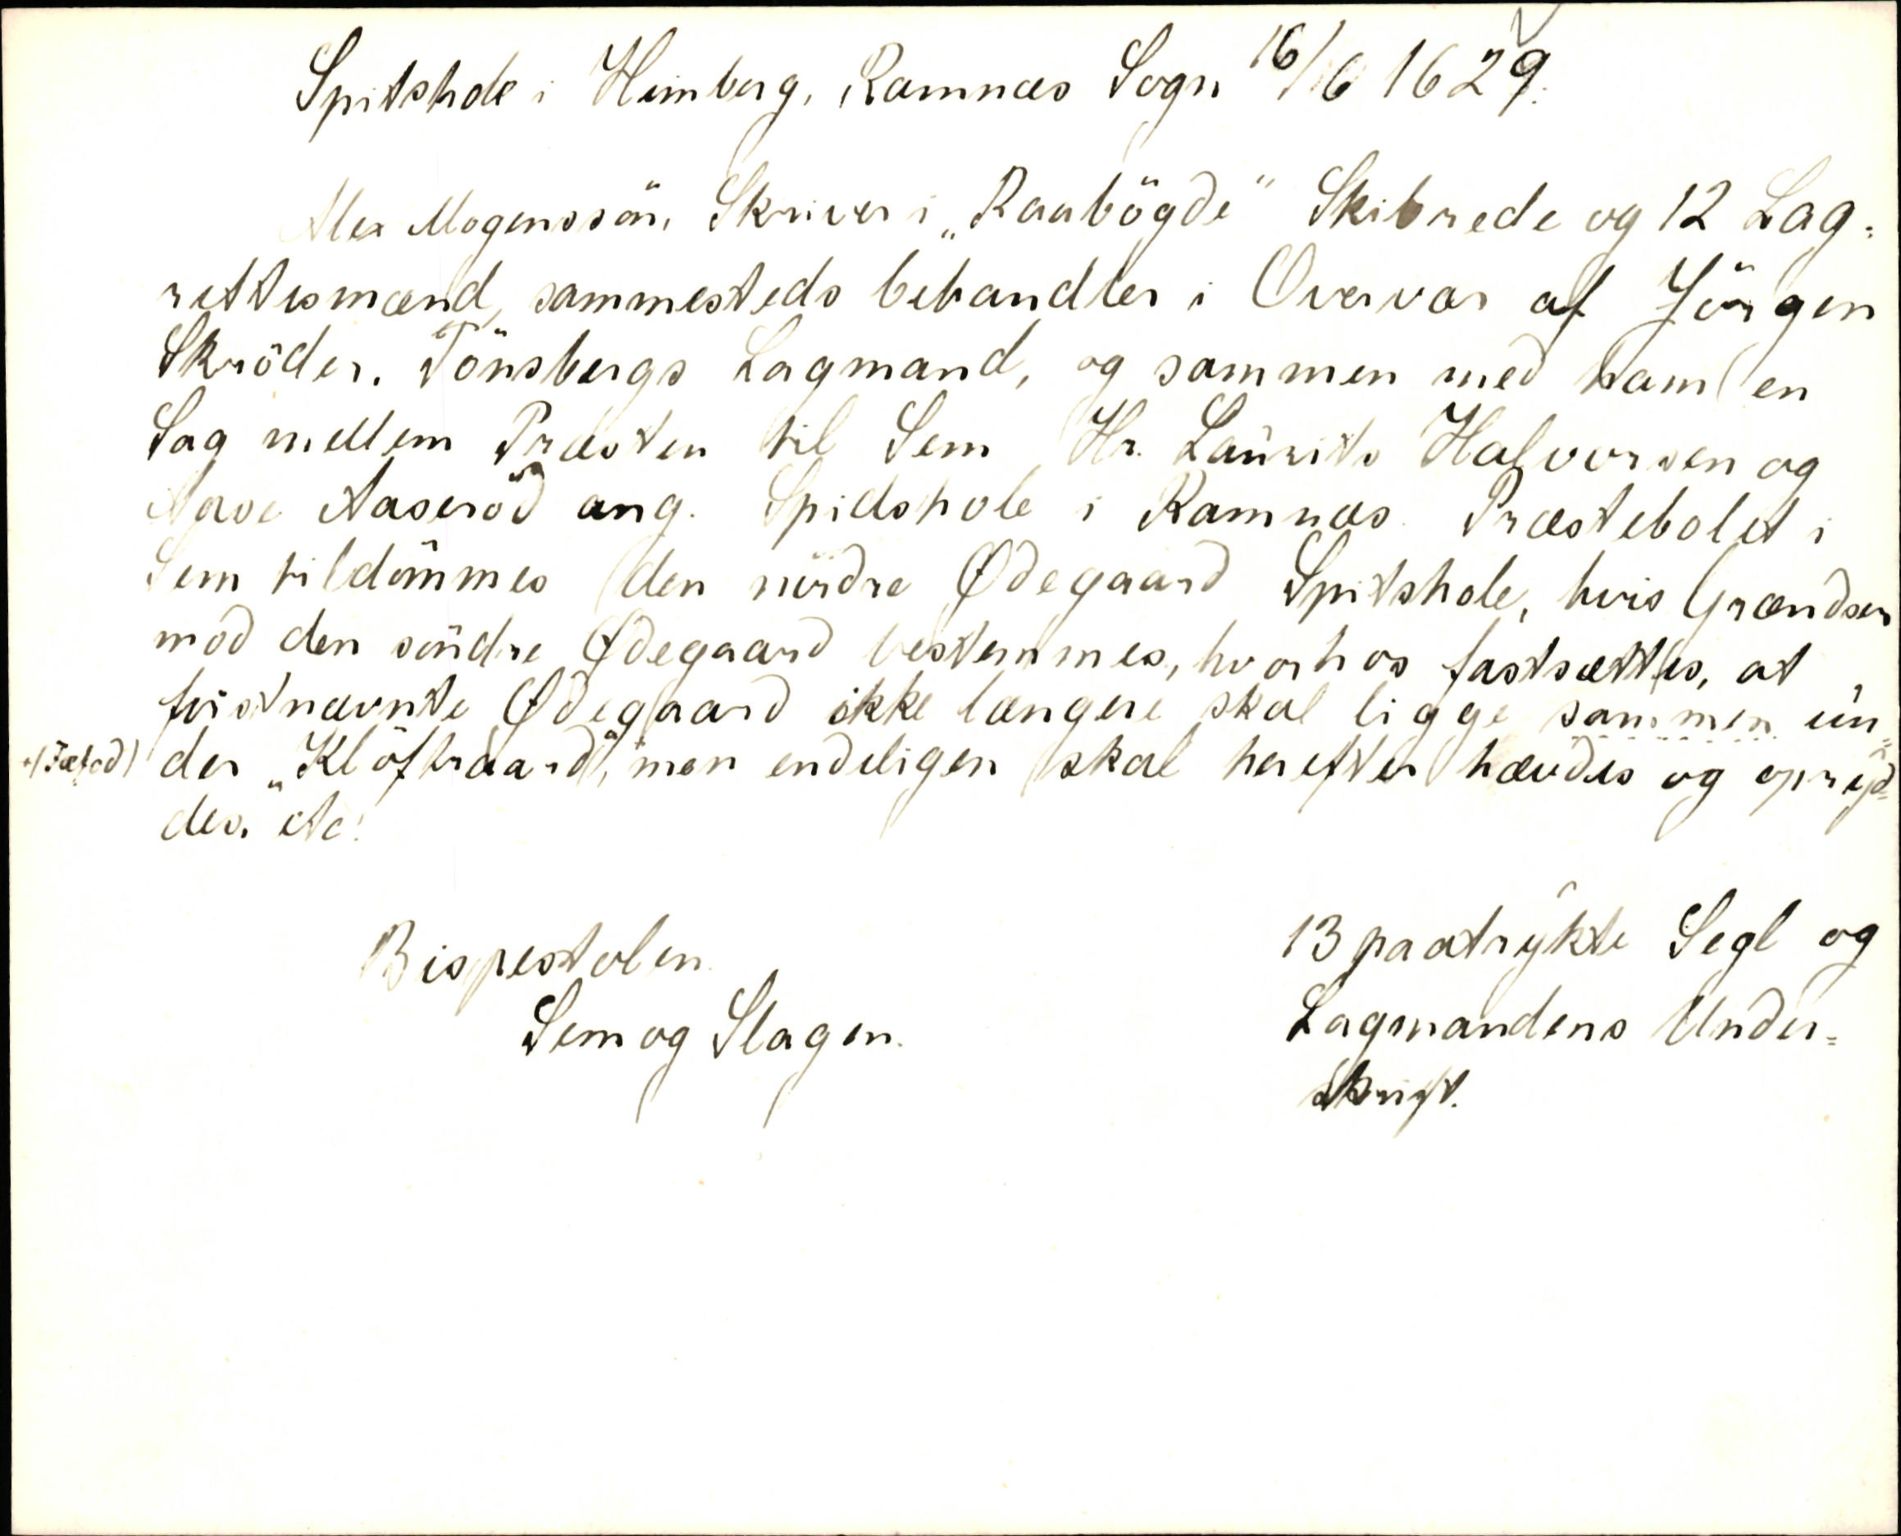 Spitshole i Himberg, Ramnæs Sogn 16/6 1629.
Alex Mogenssön, Skriver i „Raabögde" Skibrede og 12 Lag-
rettesmænd, sammesteds behandler i Overvær af Jörgen
Skröder, Tönsbergs Lagmand, og sammen med ham en
Sag mellem Præsten til Sem Hr. Laurits Halvorsen og
Aase Aaseröd ang. Spidshole i Ramnæs. Præstebolet i
Sem tildömmes den nördre Ødegaard Spitshole, hvis Grændser
mod den söndre Ødegaard bestemmes, hvorhos fastsættes, at
förstnævnte Ødegaard ikke længere skal ligge sammen un-
der „Klöftraard", men endeligen skal herefter hævdes og opryd-
des. etc.
Bispestolen.
Sem og Slagen.
13 paatrykte Segl og
Lagmandens Under-
skrift.